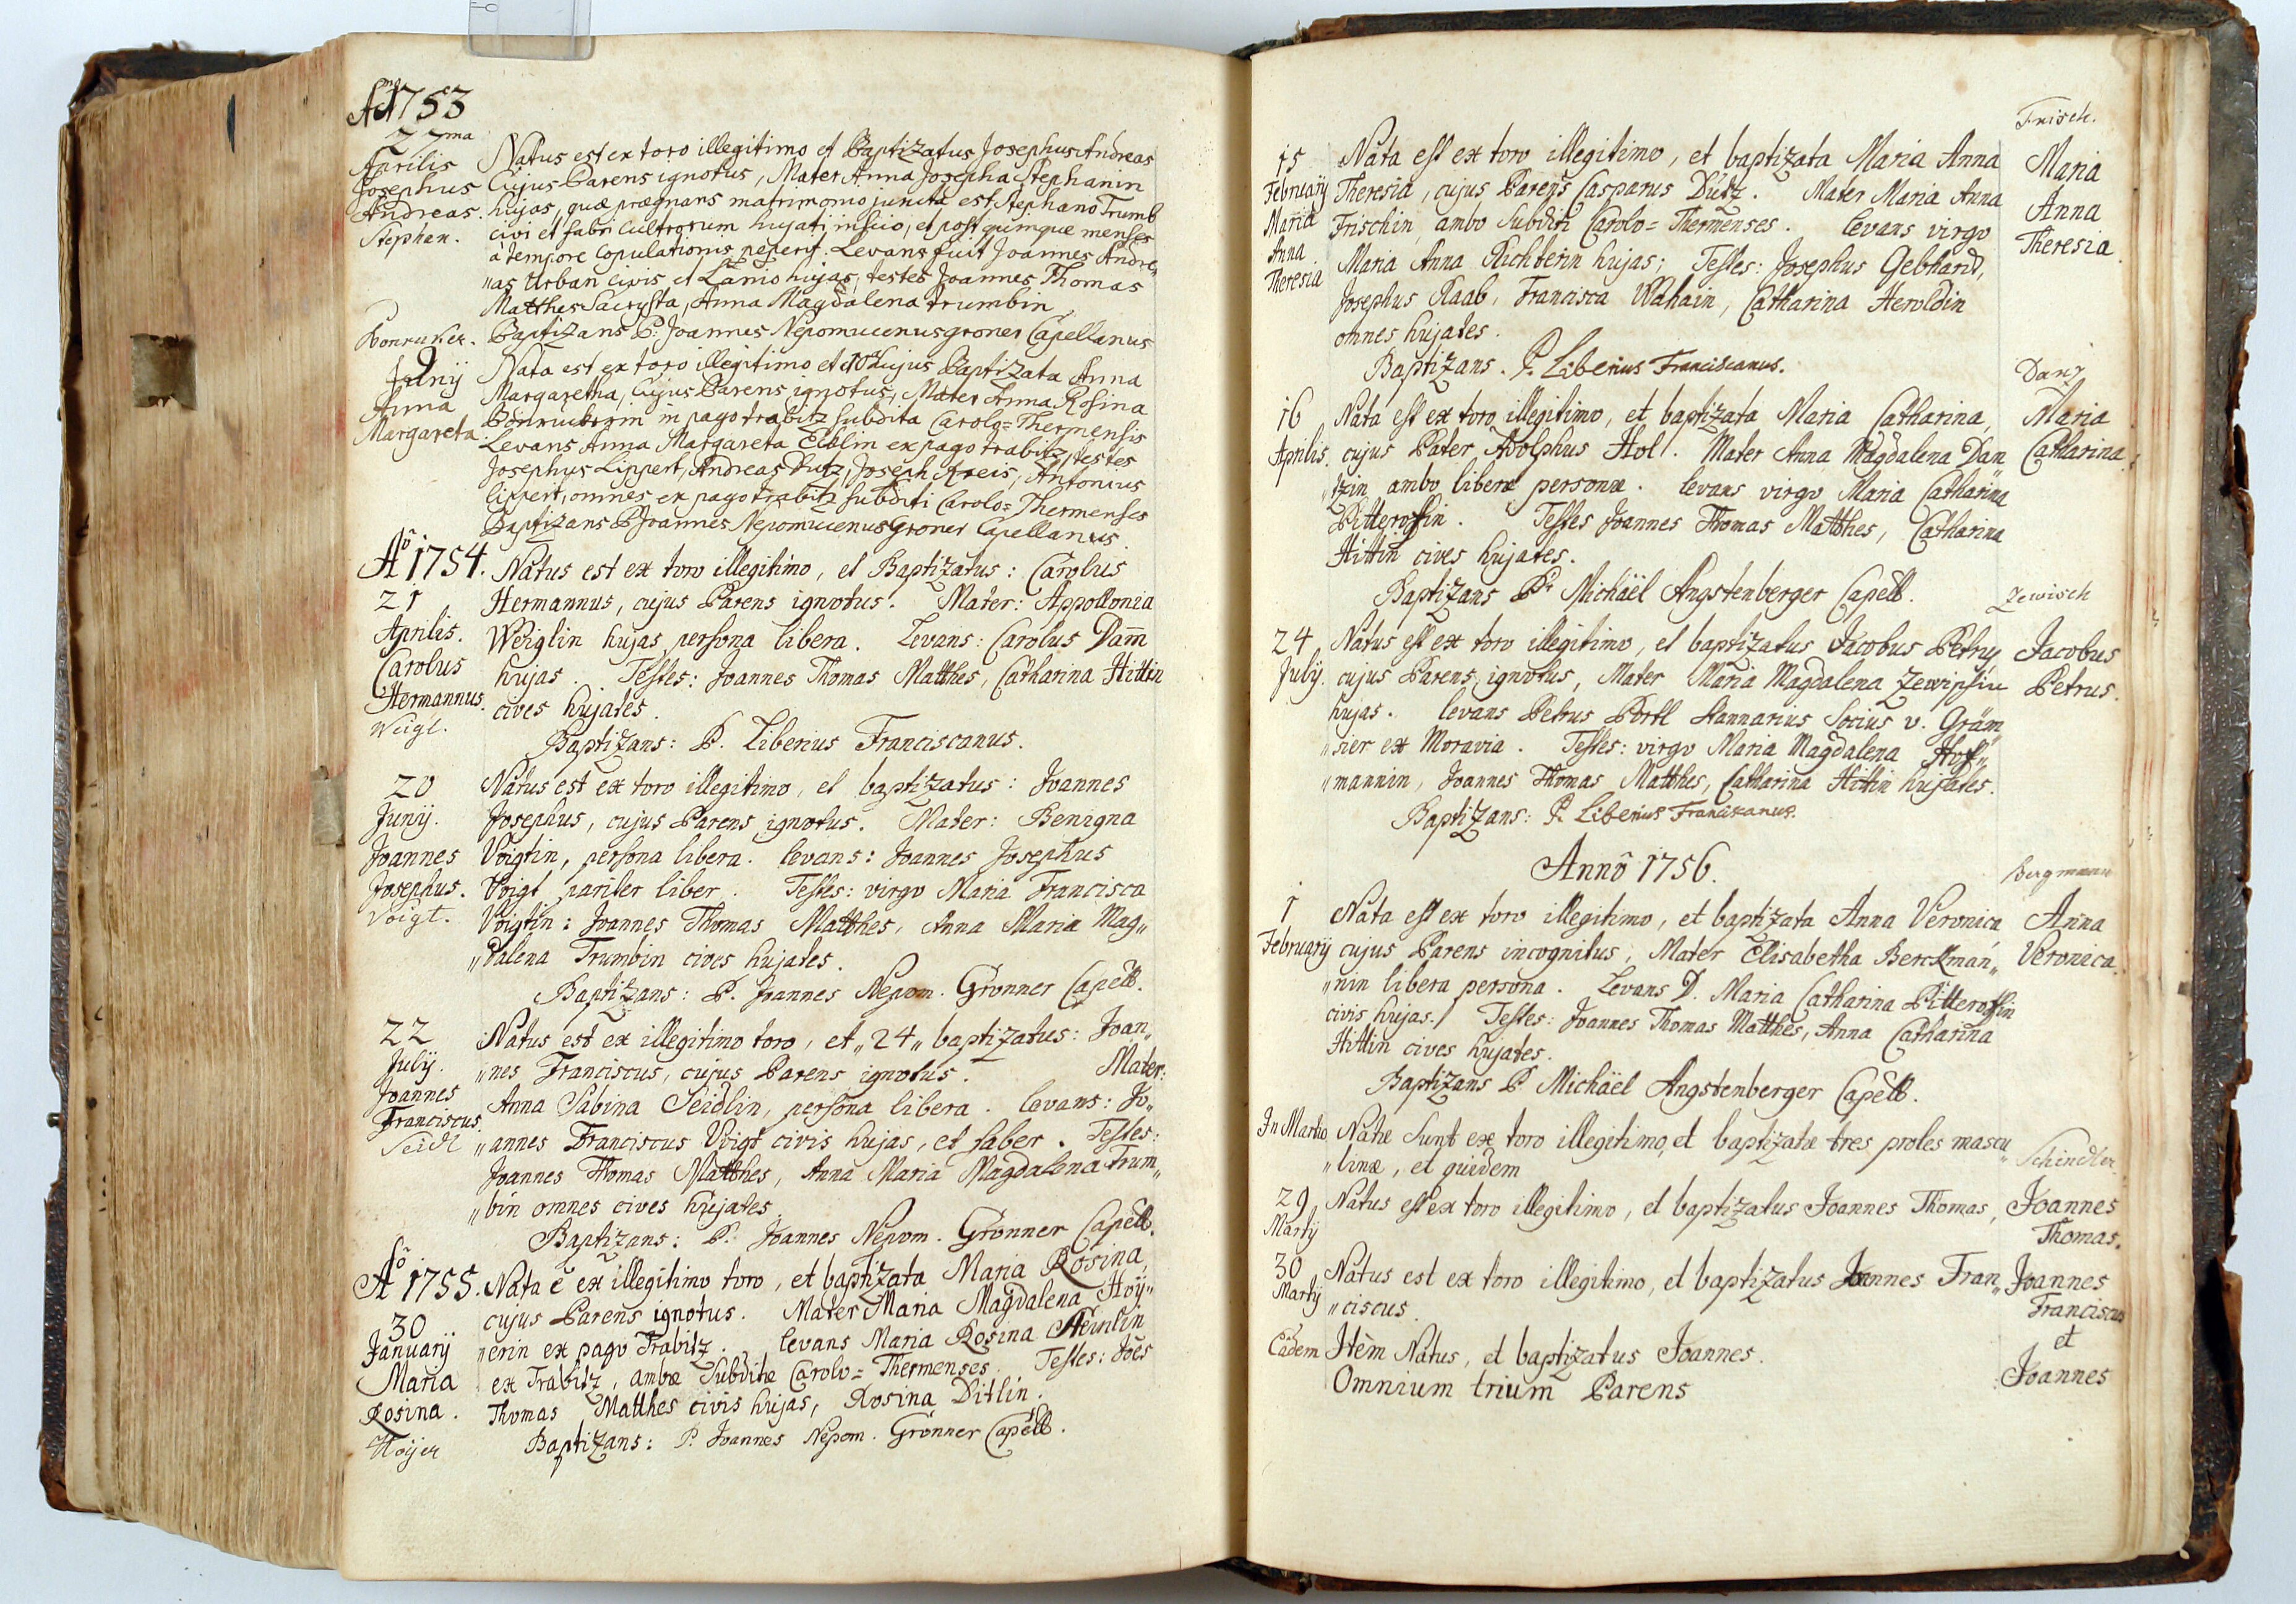 Añ 1753
27ma
Aprilis
Josephus
Andreas.
Stephan.
Natus est ex toro illegitimo et Baptizatus Josephus Andreas
Cujus Parens ignotus, Mater Anna Josepha Stephanin
hujas, quæ prægnans matrimonio juncta est Stephano Trumb
civi et fabri cultrorum hujati inscio, et post quinque menses
à tempore copulationis peperit. Levans fuit Joannes Andre„
„as Urban civis et Lanio hujas, testes Joannes Thomas
Matthes Sacrysta, Anna Magdalena trumbin
Baptizans P: Joannes Nepomucenus groner Capellanus
Ponruker.
9
Junij
Anna
Margareta.
Nata est ex toro illegitimo et 10 hujus Baptizata Anna
Margaretha, Cujus Parens ignotus, Mater Anna Rosina
Ponrukerin in pago trabitz subdita Carolo=Thermensis
Levans Anna Margareta Elblin ex pago trabitz, testes
Josephus Lippert, Andreas Dutz, Joseph Kreis, Antonius
lippert, omnes ex pago trabitz subditi Carolo=Thermenses
Baptizans P Joannes Nepomucenus Groner Capellanus
Aõ 1754.
21
Aprilis.
Carolus
Hermannus.
Weigl.
Natus est ex toro illegitimo, et Baptizatus: Carolus
Hermannus, cujus Parens ignotus. Mater: Appollonia
Weiglin hujas persona libera. Levans: Carolus Dam̃
hujas. Testes: Joannes Thomas Matthes, Catharina Hittin
cives hujates.
Baptizans: P. Liberius Franciscanus.
20
Junij.
Joannes
Josephus.
Voigt.
Natus est ex toro illegitimo, et baptizatus: Joannes
Josephus, cujus Parens ignotus. Mater: Benigna
Voigtin, persona libera. levans: Joannes Josephus
Voigt pariter liber. Testes: virgo Maria Francisca
Voigtin: Joannes Thomas Matthes, Anna Maria Mag„
„dalena Trumbin cives hujates.
Baptizans: P. Joannes Nepom. Grönner Capell.
22
Julij.
Joannes
Franciscus.
Seidl
Natus est ex illegitimo toro, et „24„ baptizatus: Joan„
„nes Franciscus, cujus Parens ignotus. Mater:
Anna Sabina Seidlin, persona libera. levans: Jo„
„annes Franciscus Voigt civis hujas, et faber. Testes:
Joannes Thomas Matthes, Anna Maria Magdalena Trum„
„bin omnes cives hujates.
Baptizans: P. Joannes Nepom. Grönner Capell.
Aõ 1755.
30
Januarij
Maria
Rosina.
Höyer
Nata ē ex illegitimo toro, et baptizata Maria Rosina,
cujus Parens ignotus. Mater Maria Magdalena Höy„
„erin ex pago Trabitz. levans Maria Rosina
ex Trabitz, ambæ Subditæ Carolo=Thermenses. Testes: Joẽs
Thomas Matthes civis hujas, Rosina Ditlin.
Baptizans: P. Joannes Nepom. Grönner Capell.
Frisch.
15
Februarij
Maria
Anna
Theresia
Nata est ex toro illegitimo, et baptizata Maria Anna
Theresia, cujus Parens Casparus Dutz. Mater Maria Anna
Frischin ambo Subditi Carolo=Thermenses. levans virgo
Maria Anna Richterin hujas; Testes: Josephus Gebhard,
Josephus Raab, Francisca Wahain, Catharina Heroldin
omnes hujates.
Baptizans. P. Liberius Franciscanus.
Maria
Anna
Theresia.
Danz
16
Aprilis.
Nata est ex toro illegitimo, et baptizata Maria Catharina,
cujus Pater Adolphus Hol. Mater Anna Magdalena Dan„
„tzin ambo liberæ personæ. levans virgo Maria Catharina
Pitteroffin. Testes Joannes Thomas Matthes, Catharina
Hittin cives hujates.
Baptizans P. Michäel Angstenberger Capell.
Maria
Catharina.
Zewisch
24
Julij.
Natus est ex toro illegitimo, et baptizatus Jacobus Petrus
cujus Parens ignotus, Mater Maria Magdalena
hujas. levans Petrus Pörtl Stannarius Socius v. Gräm„
„sier ex Moravia. Testes: virgo Maria Magdalena Hof„
„mannin, Joannes Thomas Matthes, Catharina Hittin hujates.
Baptizans: P. Liberius Franciscanus.
Jacobus
Petrus.
Annõ 1756.
Bergmann
1
Februarij
Nata est ex toro illegitimo, et baptizata Anna Veronica
cujus Parens incognitus, Mater Elisabetha Berckman„
„nin libera persona. Levans D. Maria Catharina Pitteroffin
civis hujas. Testes: Joannes Thomas Matthes, Anna Catharina
Hittin cives hujates.
Baptizans P. Michäel Angstenberger Capell.
Anna
Veronica.
In Martio
Natæ Sunt ex toro illegitimo, et baptizatæ tres proles mascu„
„linæ, et quidem
Schindler.
29
Martij
Natus est ex toro illegitimo, et baptizatus Joannes Thomas,
Joannes
Thomas.
30
Martij
Natus est ex toro illegitimo, et baptizatus Joannes Fran„
„ciscus.
Joannes
Franciscus
et
Joannes
Eadem
Item Natus, et baptizatus Joannes.
Omnium trium Parens